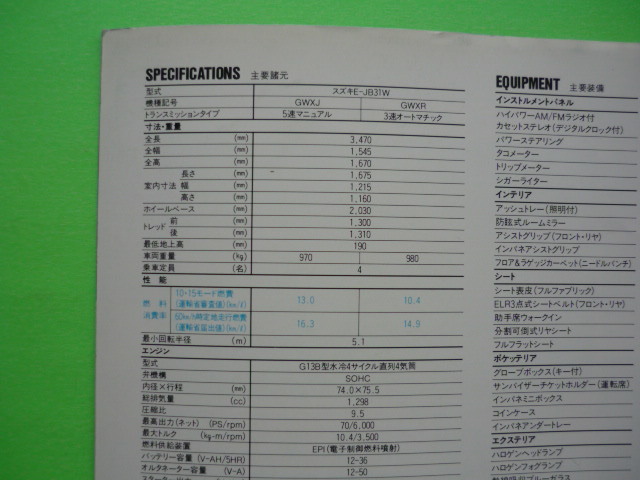 SPECIFICATIONS 主要諸元
型式 スズキE-JB31W
機種記号 GWXJ GWXR
トランスミッションタイプ 5速マニュアル 3速オートマチック
寸法・重量
全長 (mm) 3,470
全幅 (mm) 1,545
全高 (mm) 1,670
室内寸法 長さ (mm) 1,675
幅 (mm) 1,215
高さ (mm) 1,160
ホイールベース (mm) 2,030
トレッド 前 (mm) 1,300
後 (mm) 1,310
最低地上高 (mm) 190
車両重量 (kg) 970 980
乗車定員 (名) 4
性能
燃料消費率 10・15モード燃費(運輸省審査値)(km/ℓ) 13.0 10.4
60km/h定地走行燃費(運輸省届出値)(km/ℓ) 16.3 14.9
最小回転半径 (m) 5.1
エンジン
型式 G13B型水冷4サイクル直列4気筒
弁機構 SOHC
内径×行程 (mm) 74.0×75.5
総排気量 (cc) 1,298
圧縮比 9.5
最高出力(ネット) (PS/rpm) 70/6,000
最大トルク (kg-m/rpm) 10.4/3,500
燃料供給装置 EPI(電子制御燃料噴射)
バッテリー容量 (V-AH/5HR) 12-36
オルタネーター容量 (V-A) 12-50
EQUIPMENT 主要装備
インストルメントパネル
ハイパワーAM/FMラジオ付
カセットステレオ(デジタルクロック付)
パワーステアリング
タコメーター
トリップメーター
シガーライター
インテリア
アッシュトレー(照明付)
防眩式ルームミラー
アシストグリップ(フロント・リヤ)
インパネアシストグリップ
フロア&ラゲッジカーペット(ニードルパンチ)
シート
シート表皮(フルファブリック)
ELR3点式シートベルト(フロント・リヤ)
助手席ウォークイン
分割可倒式リヤシート
フルフラットシート
ポケッテリア
グローブボックス(キー付)
サンバイザーチケットホルダー(運転席)
インパネミニボックス
コインケース
インパネアンダートレー
エクステリア
ハロゲンヘッドランプ
ハロゲンフォグランプ